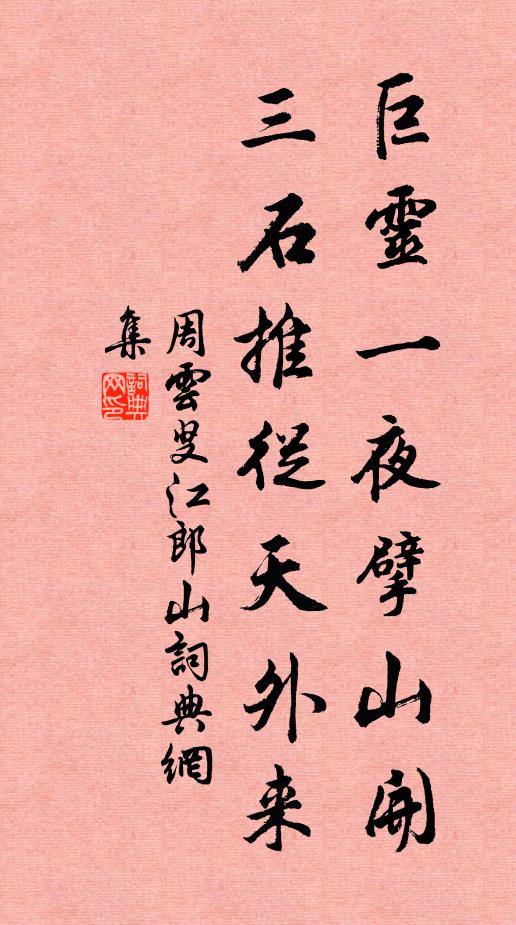 巨靈一夜擘山開
三石推從天外来
周雲叟江郎山詞典網
集
詞典
网印